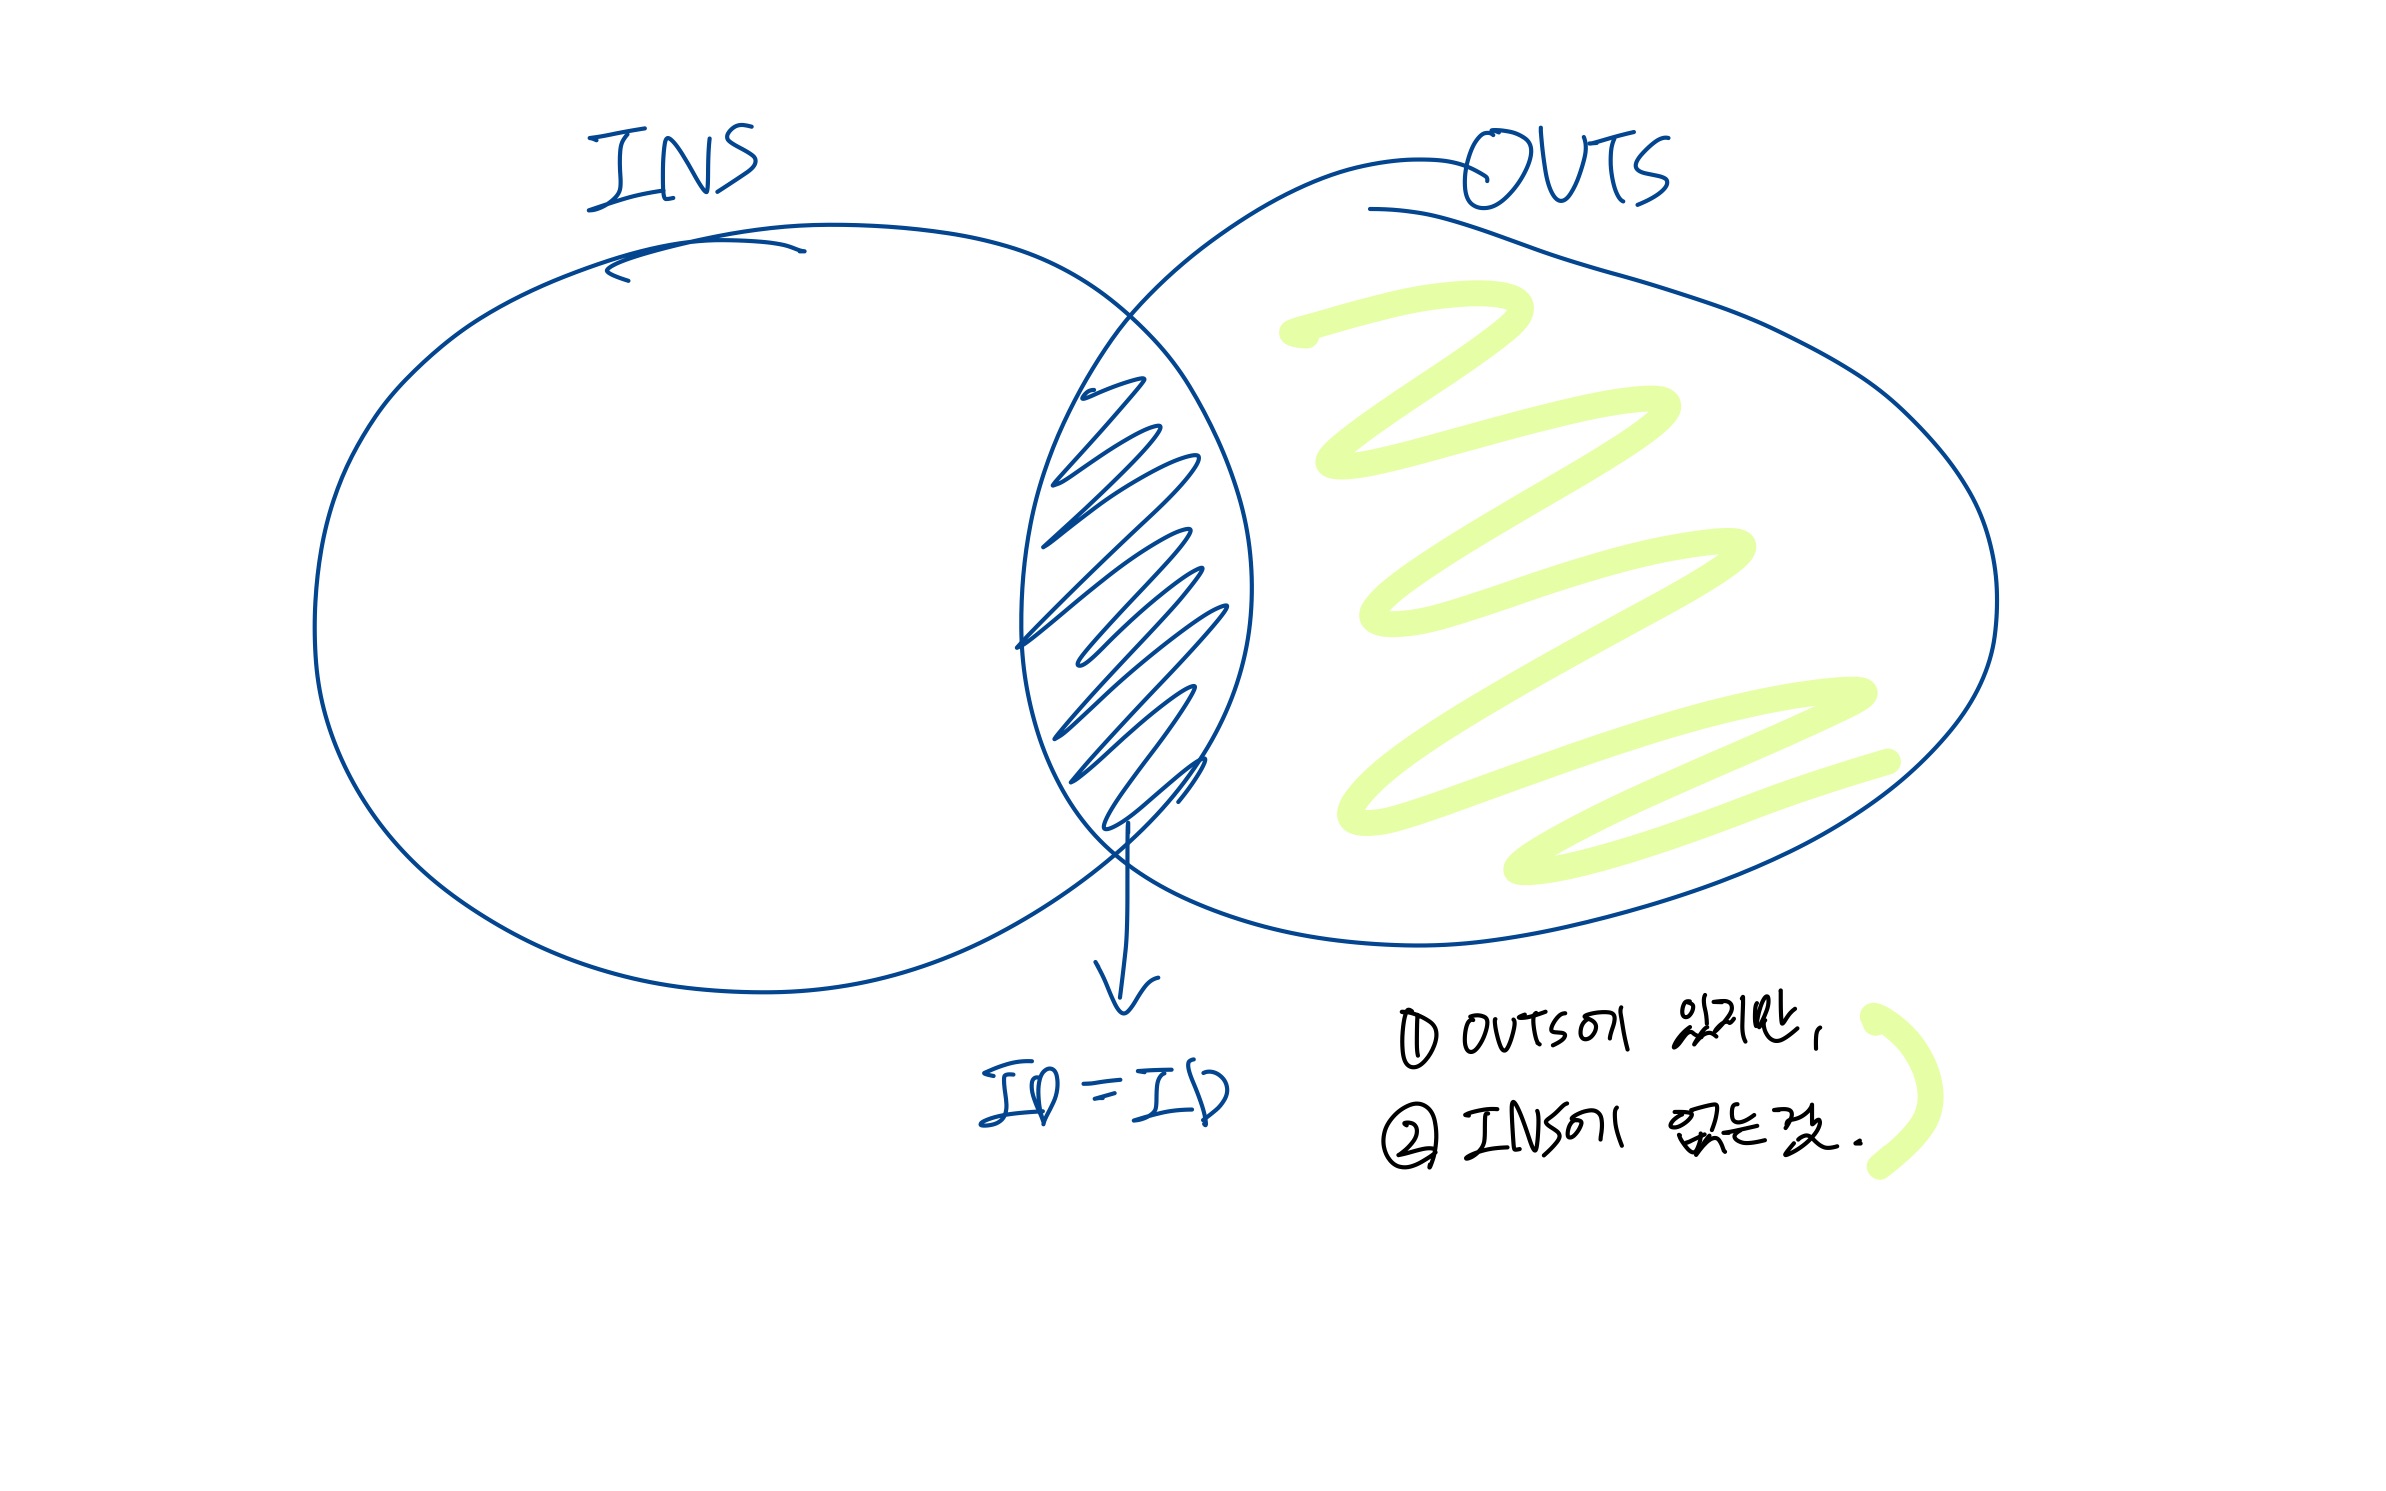 INS
OUTS
ID = ID
① OUTS에 있지만,
② INS에 없는것.